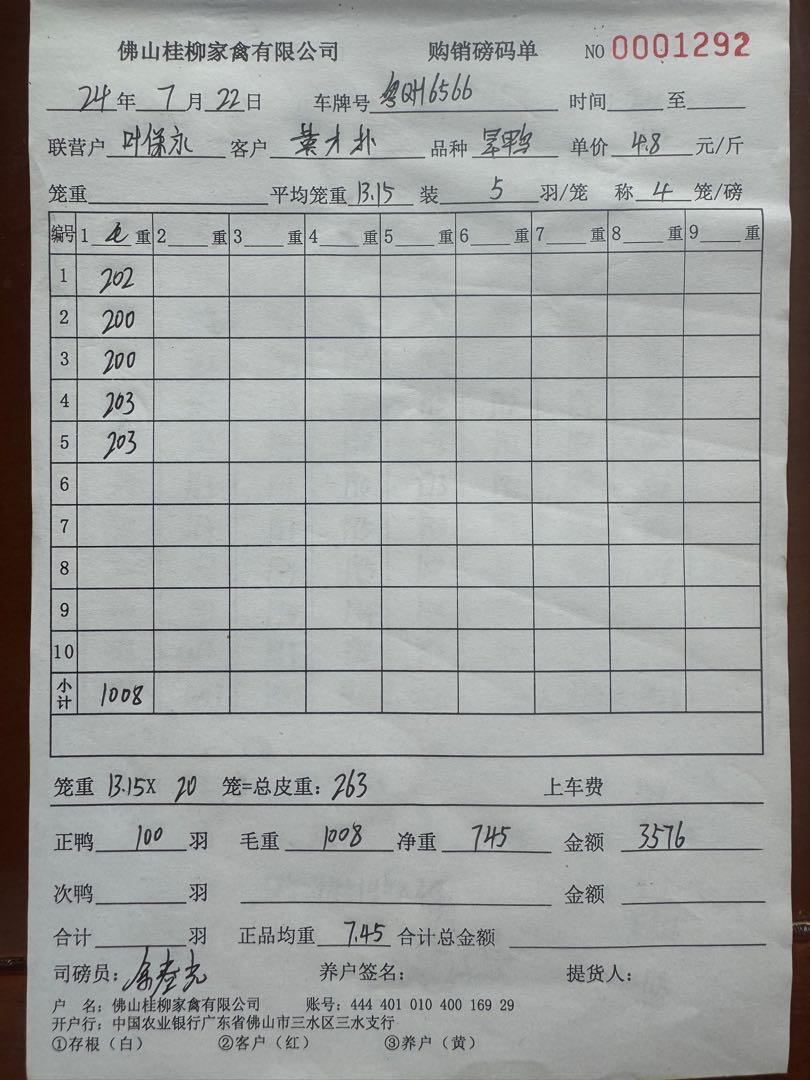 佛山桂柳家禽有限公司 购销磅码单 NO 0001292
24年 7月 22日 车牌号 粤QH6566 时间 至
联营户 叶保永 客户 黄才朴 品种 鸭 单价 4.8 元/斤
笼重 平均笼重 13.15 装 5 羽/笼 称 4 笼/磅
编号 1 毛 重 2 重 3 重 4 重 5 重 6 重 7 重 8 重 9 重
1 202
2 200
3 200
4 203
5 203
6
7
8
9
10
小计 1008
笼重 13.15X 20 笼=总皮重: 263 上车费
正鸭 100 羽 毛重 1008 净重 745 金额 3576
次鸭 羽 金额
合计 羽 正品均重 7.45 合计总金额
司磅员: 养户签名: 提货人:
户 名: 佛山桂柳家禽有限公司 账号: 444 401 010 400 169 29
开户行: 中国农业银行广东省佛山市三水区三水支行
①存根（白） ②客户（红） ③养户（黄）